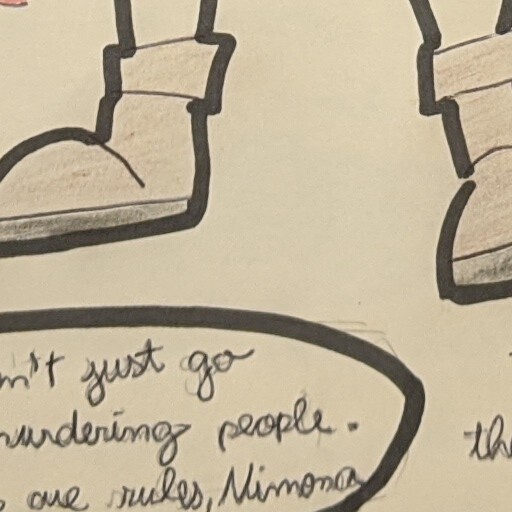 n't just go
murdering people.
are rules, Nimona
the